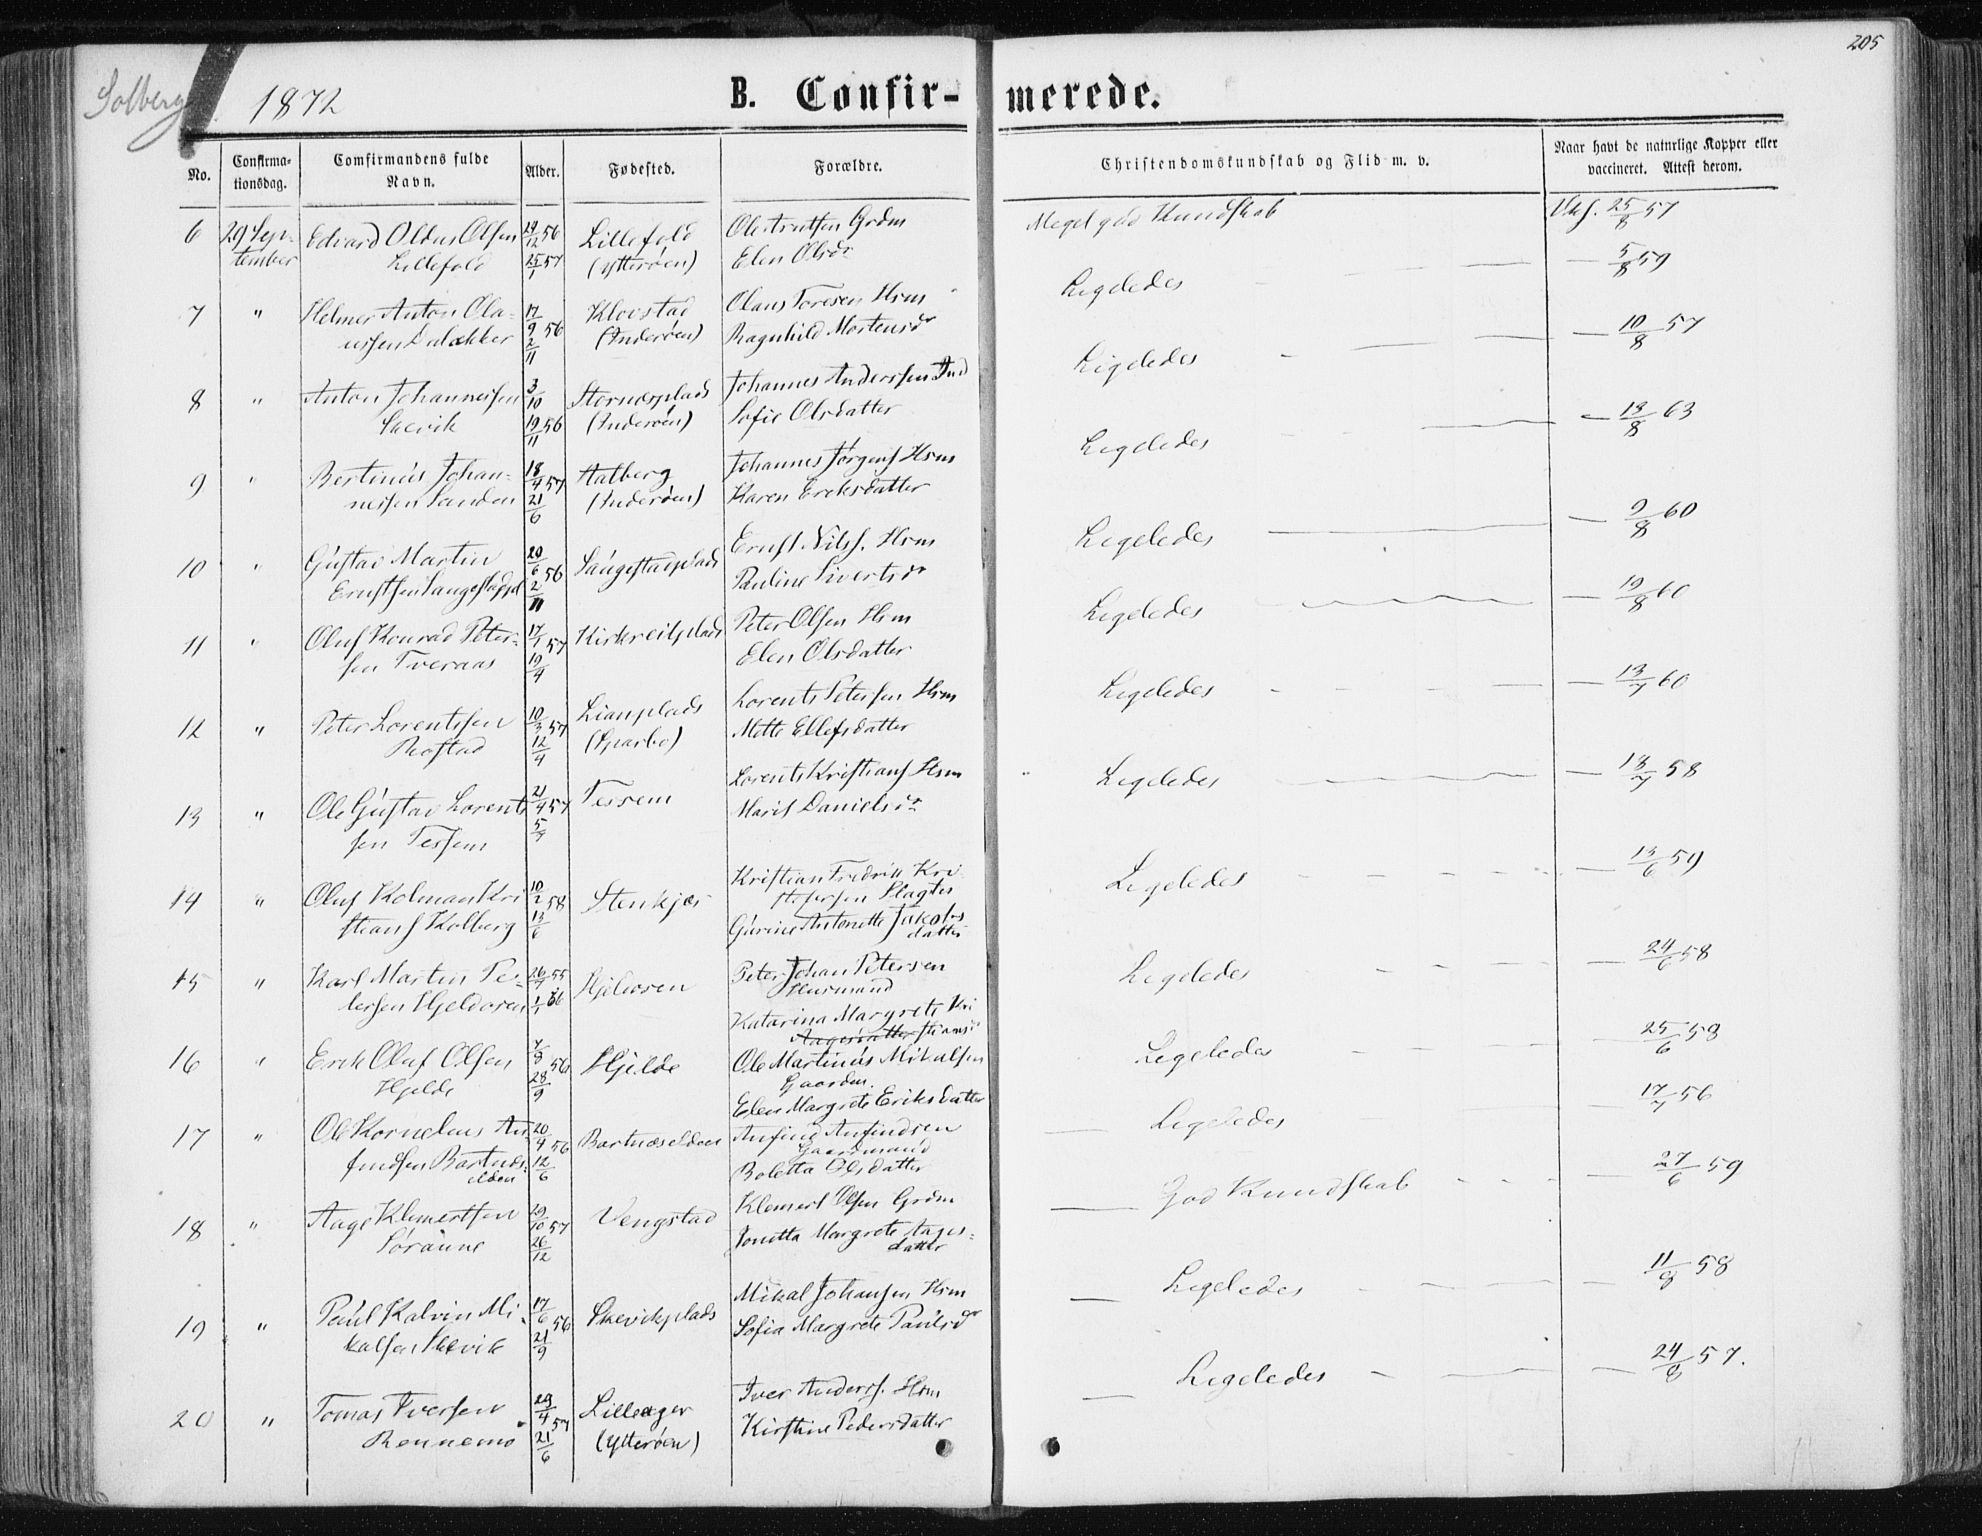 205
Solberg
1872
B. Confir-merede.
No.
Confirma-
tionsdag.
Comfirmandens fulde
Navn.
Alder.
Fødested.
Forældre.
Christendomskundskab og Flid m. v.
Naar havt de naturlige Kopper eller
vaccineret. Attest herom.
6 29 Sep- Edvard Oldus Olsen 56 Lillefold Grdm Meget god Kundskab 25/8 57
tember Lillefold 25/1 57 (Ytterøen) Elen Olsdr
7 " Helmer Anton Ola- 17/9 56 Klovstad Olaus Toresen Hsm Ligeledes — 5/8 59
ussen 2/11 (Inderøen) Ragnhild Mortensdr
8 " Anton Johannessen 3/10 Johannes Anderssen Ind Ligeledes — 10/8 57
Skevik 19/11 56 (Inderøen) Sofie Olsdatter
9 " Bertinus Johan- 18/4 57 Aatberg Johannes Jørgens Hsm Ligeledes — 63
nessen Sanden 21/6 (Inderøen) Karen Ereksdatter
10 " Gustav Martin 20/6 56 Langstadplads Ernst Nils. Hsm Ligeledes — 9/8 60
Ernstsen Langstadpl 2/11 Pauline Sivertsdr
11 " Oluf Konrad Peter- 17/1 57 Kirkreitplads Peter Olsen Hsm Ligeledes — 19/8 60
sen Tveraas 19/4 Elen Olsdatter
12 " Peter Lorentssen 10/3 57 Lianplads Lorents Petersen Hsm Ligeledes — 13/7 60
Rostad 12/4 (Sparbo) Mette Ellefsdatter
13 " Ole Gustav Lorent- 21/4 57 Tessem Lorents Kristians Hsm Ligeledes — 18/7 58
sen Tessem 5/7 Marit Danielsdr
14 " Oluf Kolman Kri 10/2 58 Stenkjær Kristian Fredrik Kri- Ligeledes — 13/6 59
stians Kolberg 13/6 stofersen Slagter
Gurine Antonette Jakobs
datter
15 " Karl Martin Pe- 55 Peter Johan Petersen Ligeledes — 24/6 58
tersen 56 Husmand
Katarina Margrete Kri
Aagesdatter stiansdr
16 " Erik Oluf Olsen 56 Hjelde Ole Martinus Mikalsen Ligeledes — 25/6 58
Hjelde 28/9 Gaardm.
Elen Margrete Eriksdatter
17 " Ole Kornelius An- 20/4 56 Bartnæselden Anfind Anfindsen — Ligeledes — 17/7 56
findsen Bartnæs- 12/6 Gaardmand
elden Boletta Olsdatter
18 " Aage Klemertsen 29/10 57 Vengstad Klemert Olsen Grdm — God Kundskab — 27/6 59
Søraune 26/12 Jonetta Margrete Aages-
datter
19 " Paul Kalvin Mi- 17/6 56 Skevikplads Mikal Johansen Hsm — Ligeledes — 11/8 58
kalsen Skevik 21/9 Sofia Margrete Paulsdr
20 " Tomas Iversen 29/4 57 Lilleager Iver Anders. Hsm — Ligeledes — 24/8 57.
Rennemo 21/6 (Ytterøen) Kirstine Pedersdatter